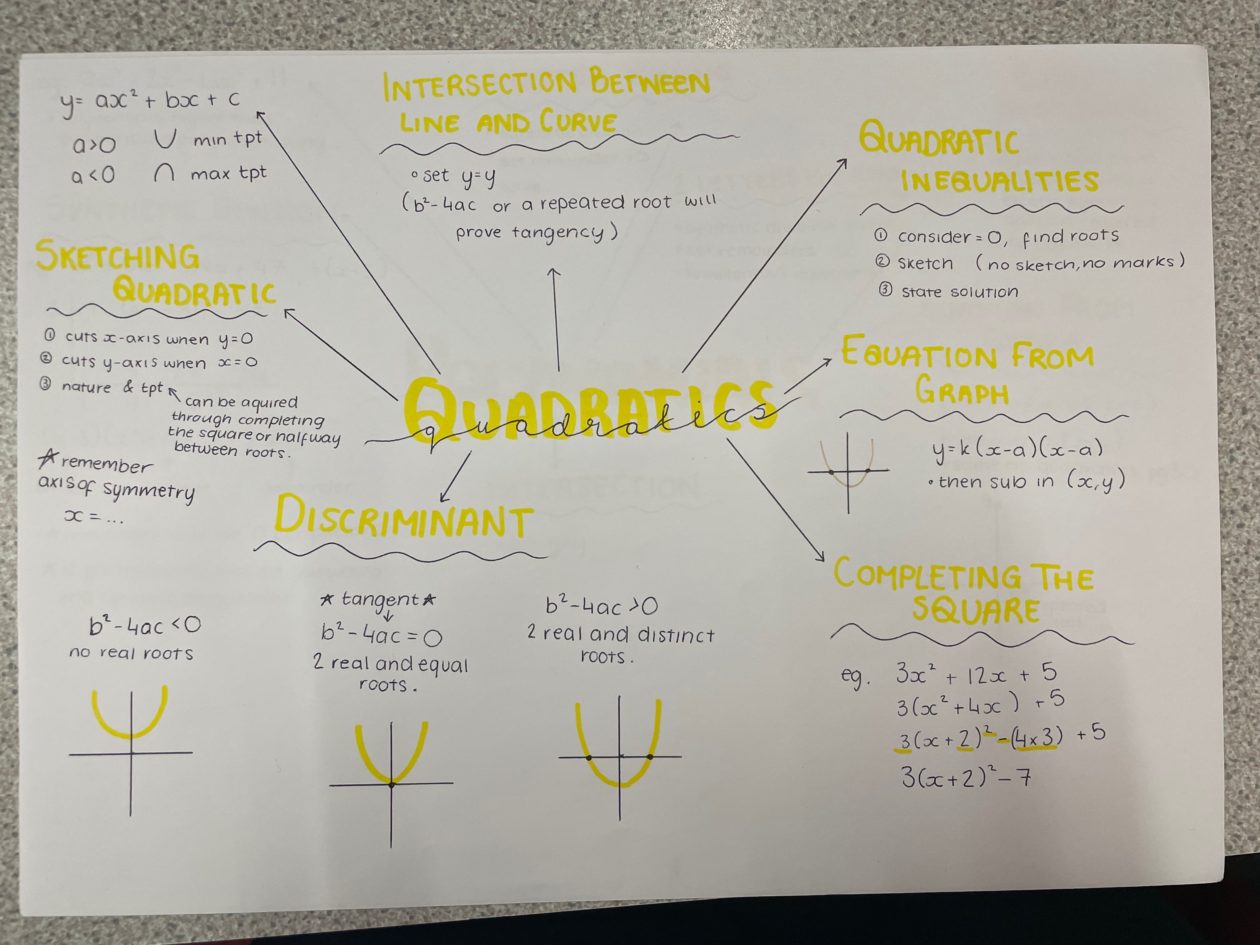 y= ax² + bx + c
a>0 ∪ min tpt
a<0 ∩ max tpt
INTERSECTION BETWEEN
LINE AND CURVE
◦ set y=y
(b²-4ac or a repeated root will
prove tangency)
QUADRATIC
INEQUALITIES
① consider = 0, find roots
② sketch (no sketch, no marks)
③ state solution
SKETCHING
QUADRATIC
① cuts x-axis when y=0
② cuts y-axis when x=0
③ nature & tpt
can be aquired
through completing
the square or halfway
between roots.
☆ remember
axis of symmetry
x = ...
QUADRATICS
quadratics
EQUATION FROM
GRAPH
y=k(x-a)(x-a)
• then sub in (x,y)
DISCRIMINANT
b²-4ac <0
no real roots
★ tangent ★
b²-4ac = 0
2 real and equal
roots.
b²-4ac >0
2 real and distinct
roots.
COMPLETING THE
SQUARE
eg. 3x² + 12x + 5
3(x² + 4x ) + 5
3(x + 2)² - (4 x 3) + 5
3(x+2)² - 7